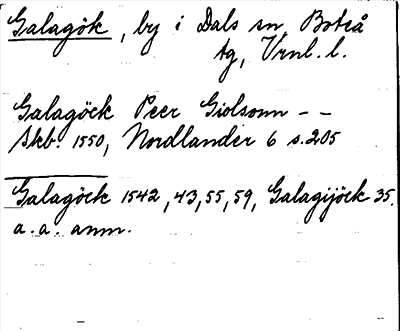 Galagök, by i Dals sn, Boteå
tg, Vrnl. l.
Galagöck Peer Giolsonn - -
Skb. 1550, Nordlander 6 s. 205
Galagöck 1542, 43, 55, 59, Galagijöck 35.
a. a. anm.